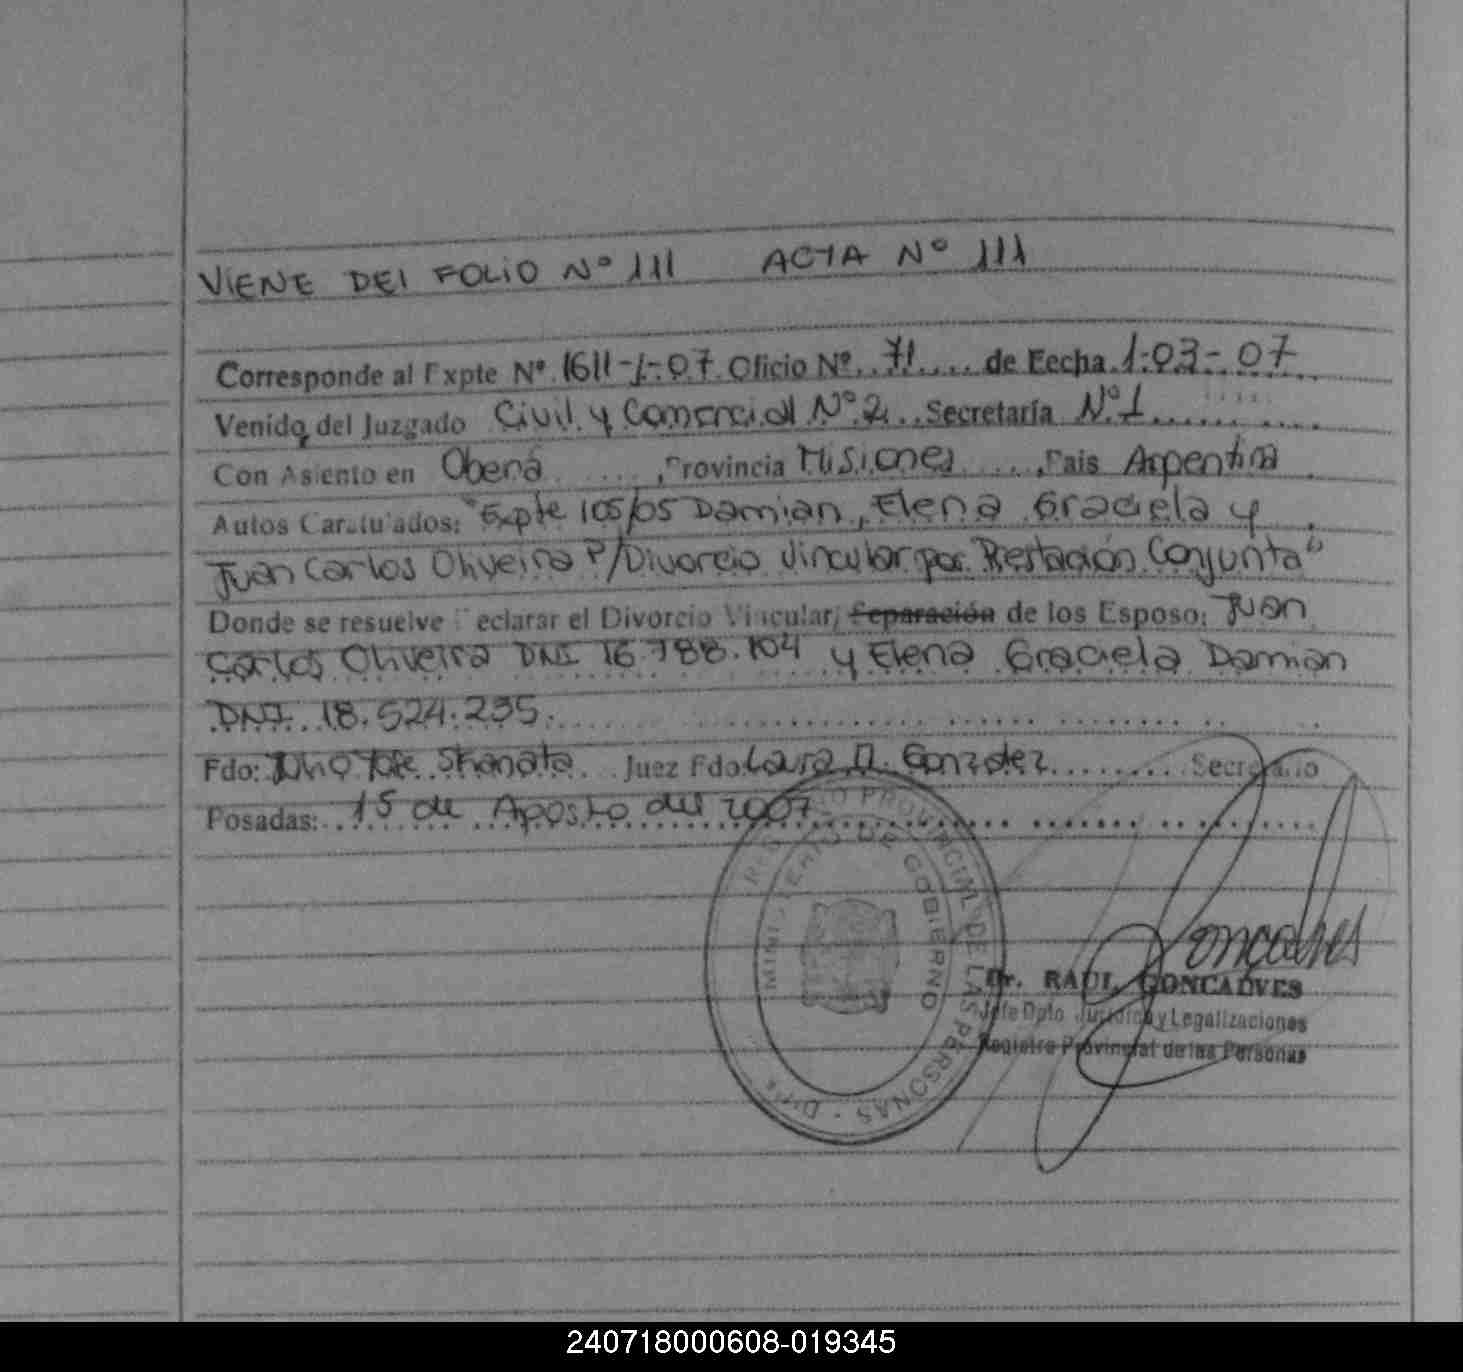 VIENE DEL FOLIO Nº 111 ACTA Nº 111
Corresponde al Expte Nº 1611-1-07 Oficio Nº 71 de Fecha 1-03-07
Venido del Juzgado Civil y Comercial Nº 2 Secretaría Nº 1
Con Asiento en Oberá, Provincia Misiones, Pais Argentina
Autos Caratulados: "Expte 105/05 Damian, Elena Graciela y
Juan Carlos Oliveira P/Divorcio Vincular por Prestación Conjunta"
Donde se resuelve Declarar el Divorcio Vincular/ Separación de los Esposo: Juan
Carlos Oliveira DNI 16.788.104 y Elena Graciela Damian
DNI 18.524.235.
Fdo: Juez Fdo: Laura González Secretario
Posadas: 15 de Agosto del 2007
PROVINCIAL DE LAS PERSONAS
MINISTERIO DE GOBIERNO
Goncalves
Dr. RAUL GONCALVES
Jefe Dpto. Jurídico y Legalizaciones
Registro Provincial de las Personas
240718000608-019345